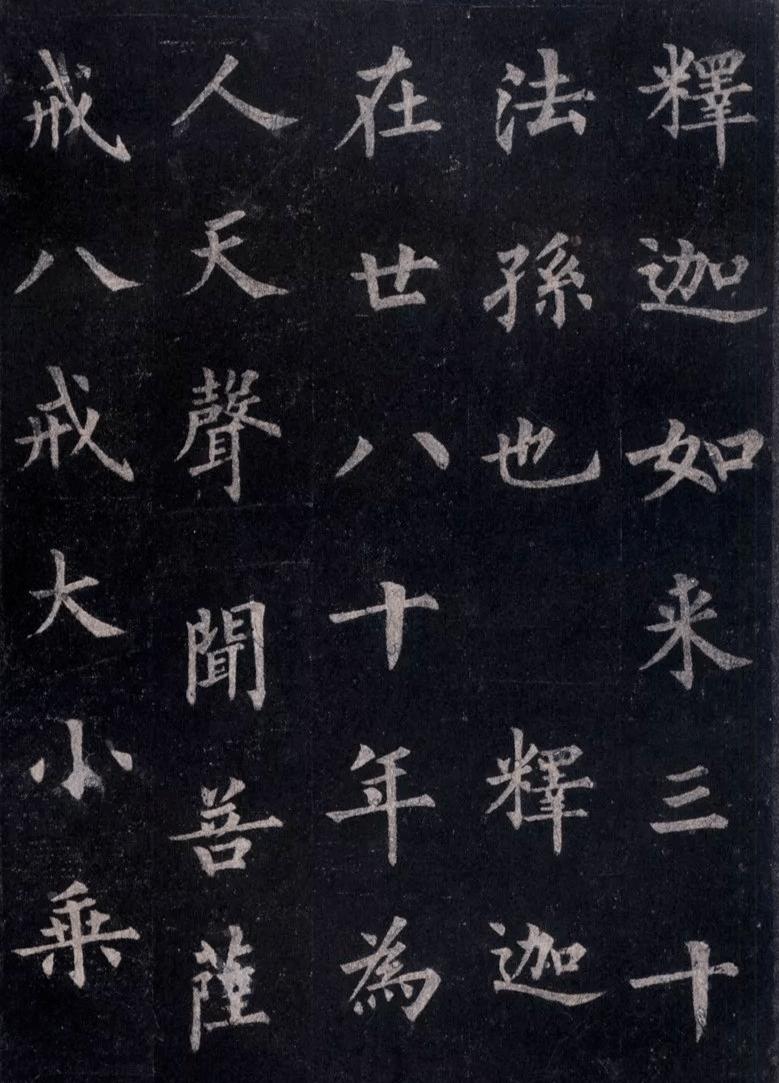 釋迦如来三十
法孫也 釋迦
在世八十年為
人天聲聞菩薩
戒八戒大小乗